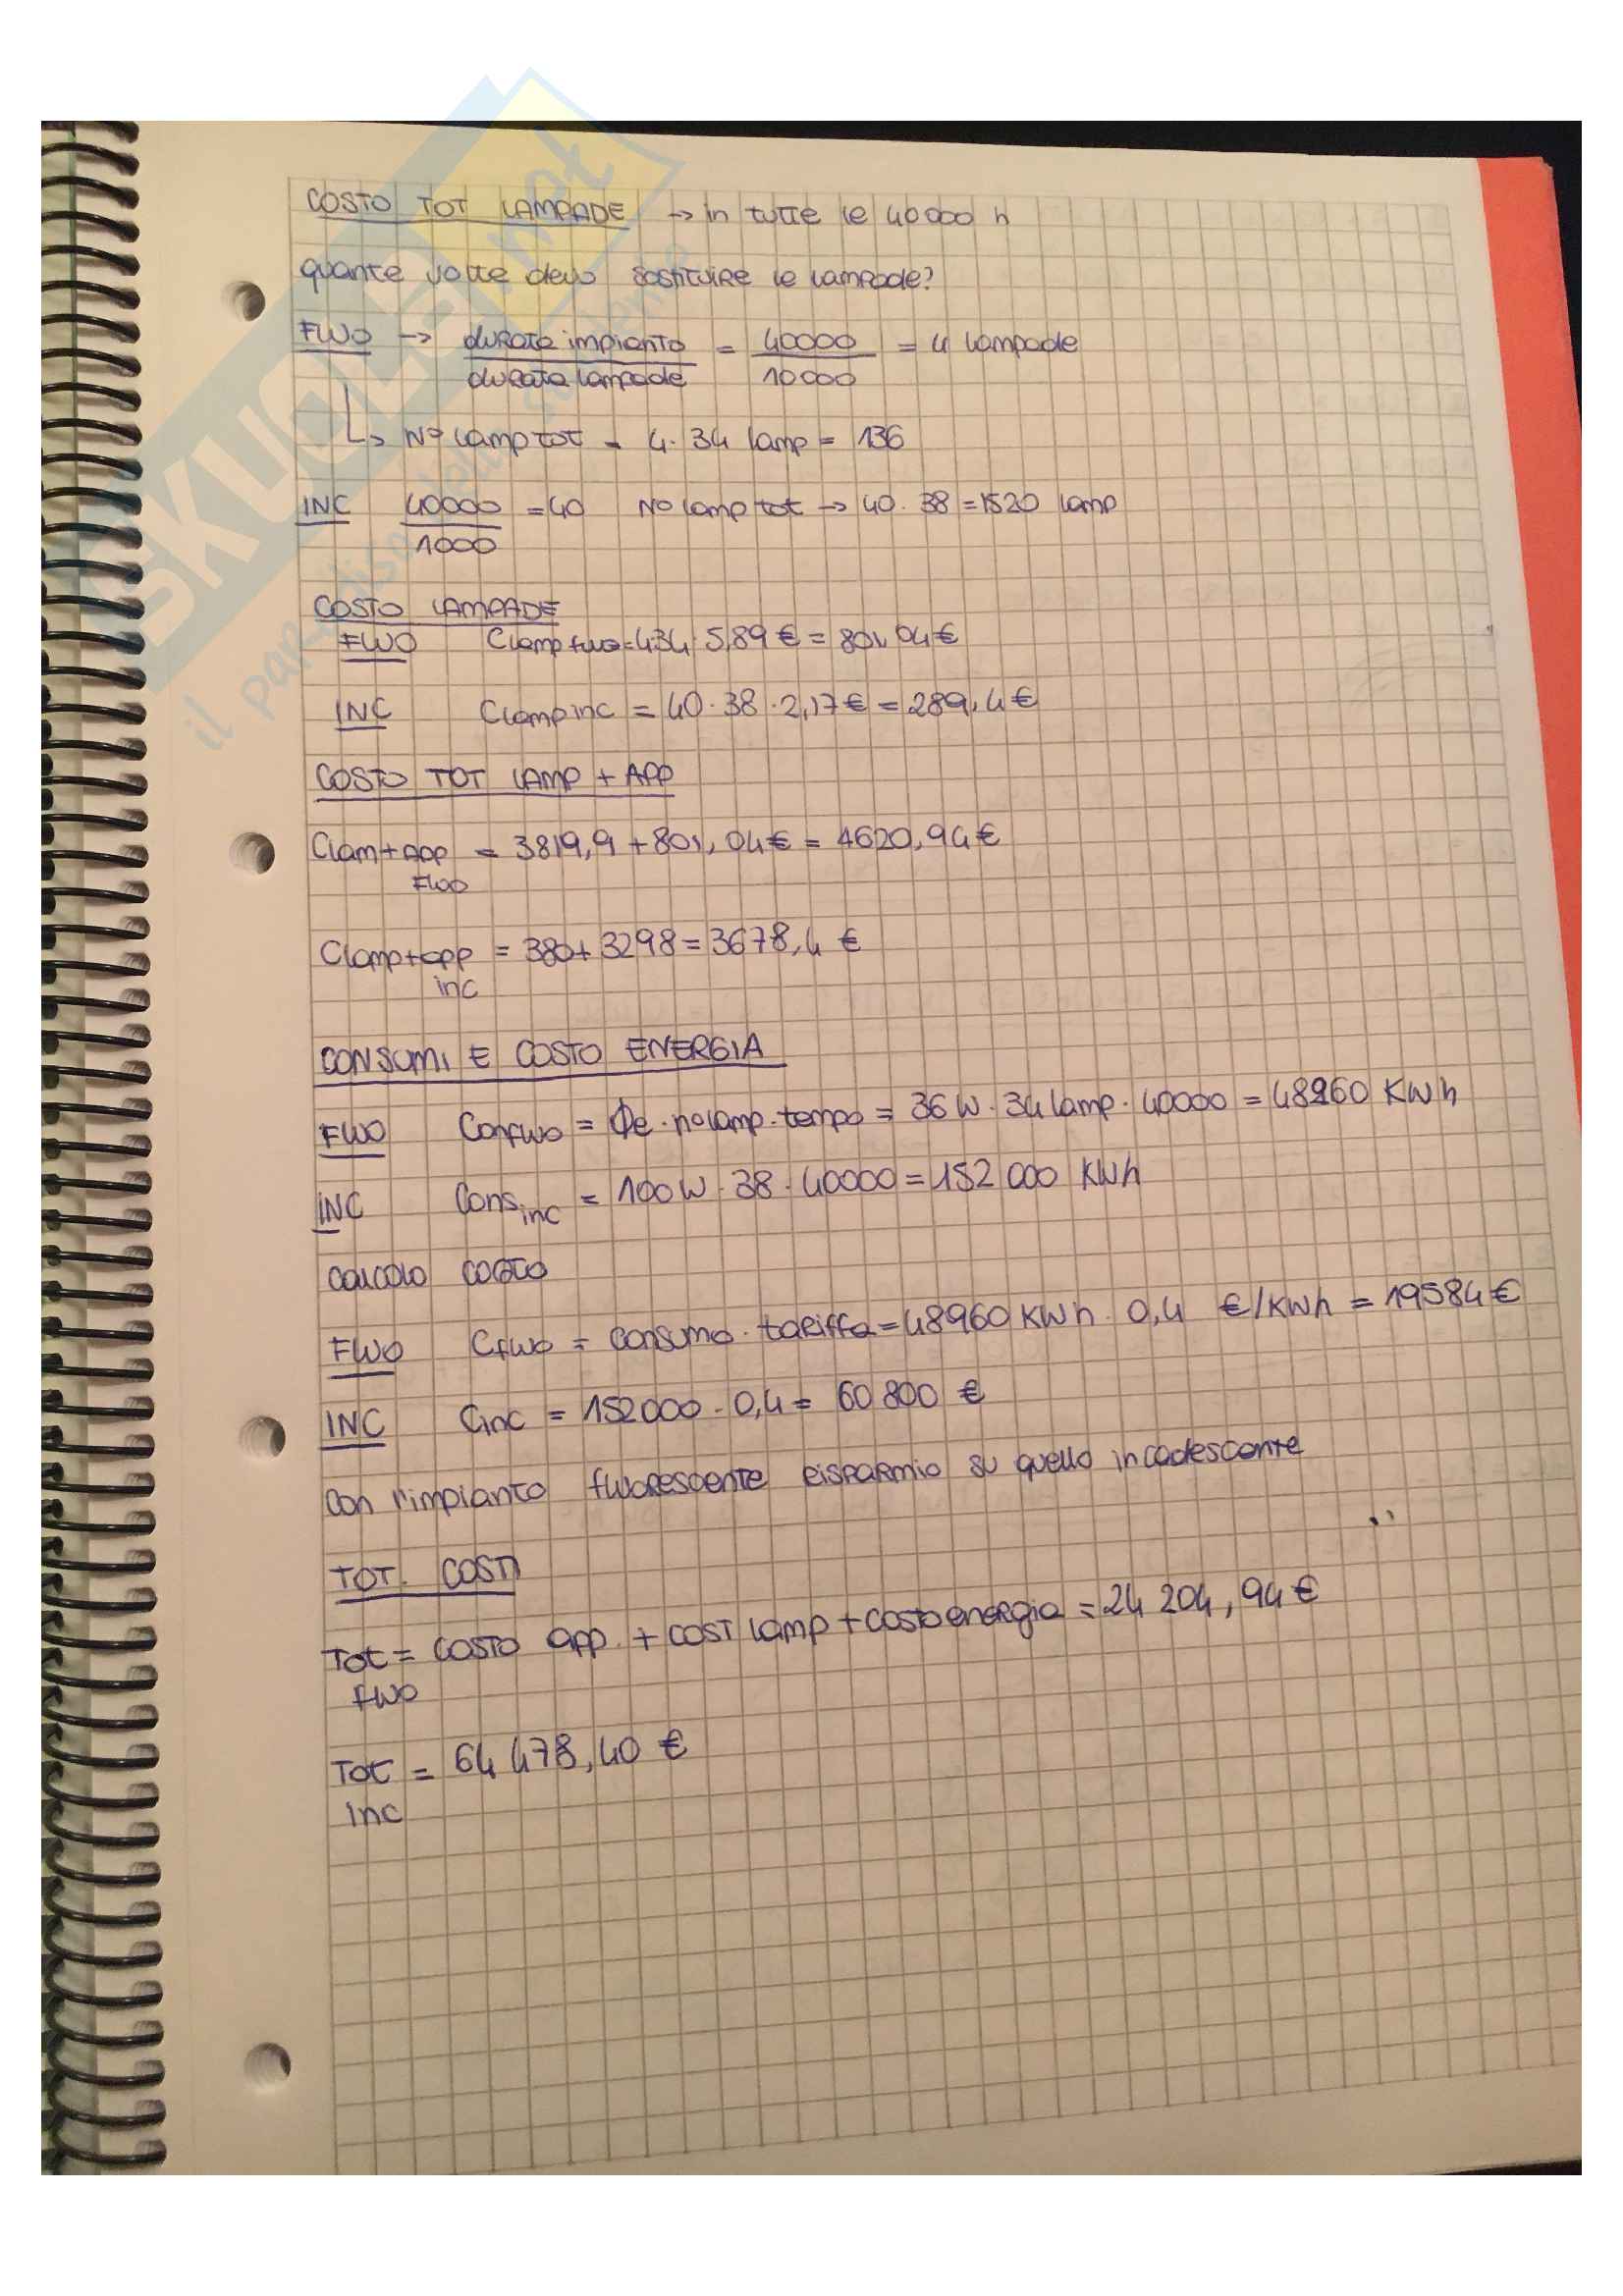 COSTO TOT LAMPADE → in tutte le 40000 h
quante volte devo sostituire le lampade?
FLUO → durata impianto / durata lampade = 40000 / 10000 = 4 lampade
↳ N° lamp tot = 4 · 34 lamp = 136
INC 40000 / 1000 = 40 N° lamp tot → 40 · 38 = 1520 lamp
COSTO LAMPADE
FLUO Clamp fluo = 4·34· 5,89 € = 801,04 €
INC Clamp inc = 40 · 38 · 2,17 € = 289,4 €
COSTO TOT LAMP + APP
Clam+APP FLUO = 3819,9 + 801,04 € = 4620,94 €
Clamp+app inc = 380+ 3298 = 3678,4 €
CONSUMI E COSTO ENERGIA
FLUO ConFLUO = Φe · n° lamp · tempo = 36 W · 34 lamp · 40000 = 48960 KWh
INC Consinc = 100 W · 38 · 40000 = 152 000 KWh
CALCOLO COSTO
FLUO CFLUO = consumo · tariffa = 48960 KWh · 0,4 €/KWh = 19584 €
INC Cinc = 152000 · 0,4 = 60 800 €
con l'impianto fluorescente risparmio su quello incadescente
TOT. COSTI
Tot fluo = COSTO app. + COST lamp + costo energia = 24 204,94 €
Tot inc = 64 478,40 €
SKUOLA.net
il paradiso dello studente